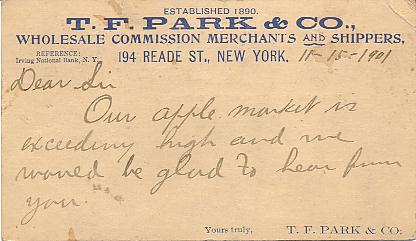 ESTABLISHED 1890.
T. F. PARK & CO.,
WHOLESALE COMMISSION MERCHANTS AND SHIPPERS,
REFERENCE:
Irving National Bank, N. Y.
194 READE ST., NEW YORK, 11-15-1901
Dear Sir
Our apple market is
exceeding high and we
would be glad to hear from
you.
Yours truly, T. F. PARK & CO.